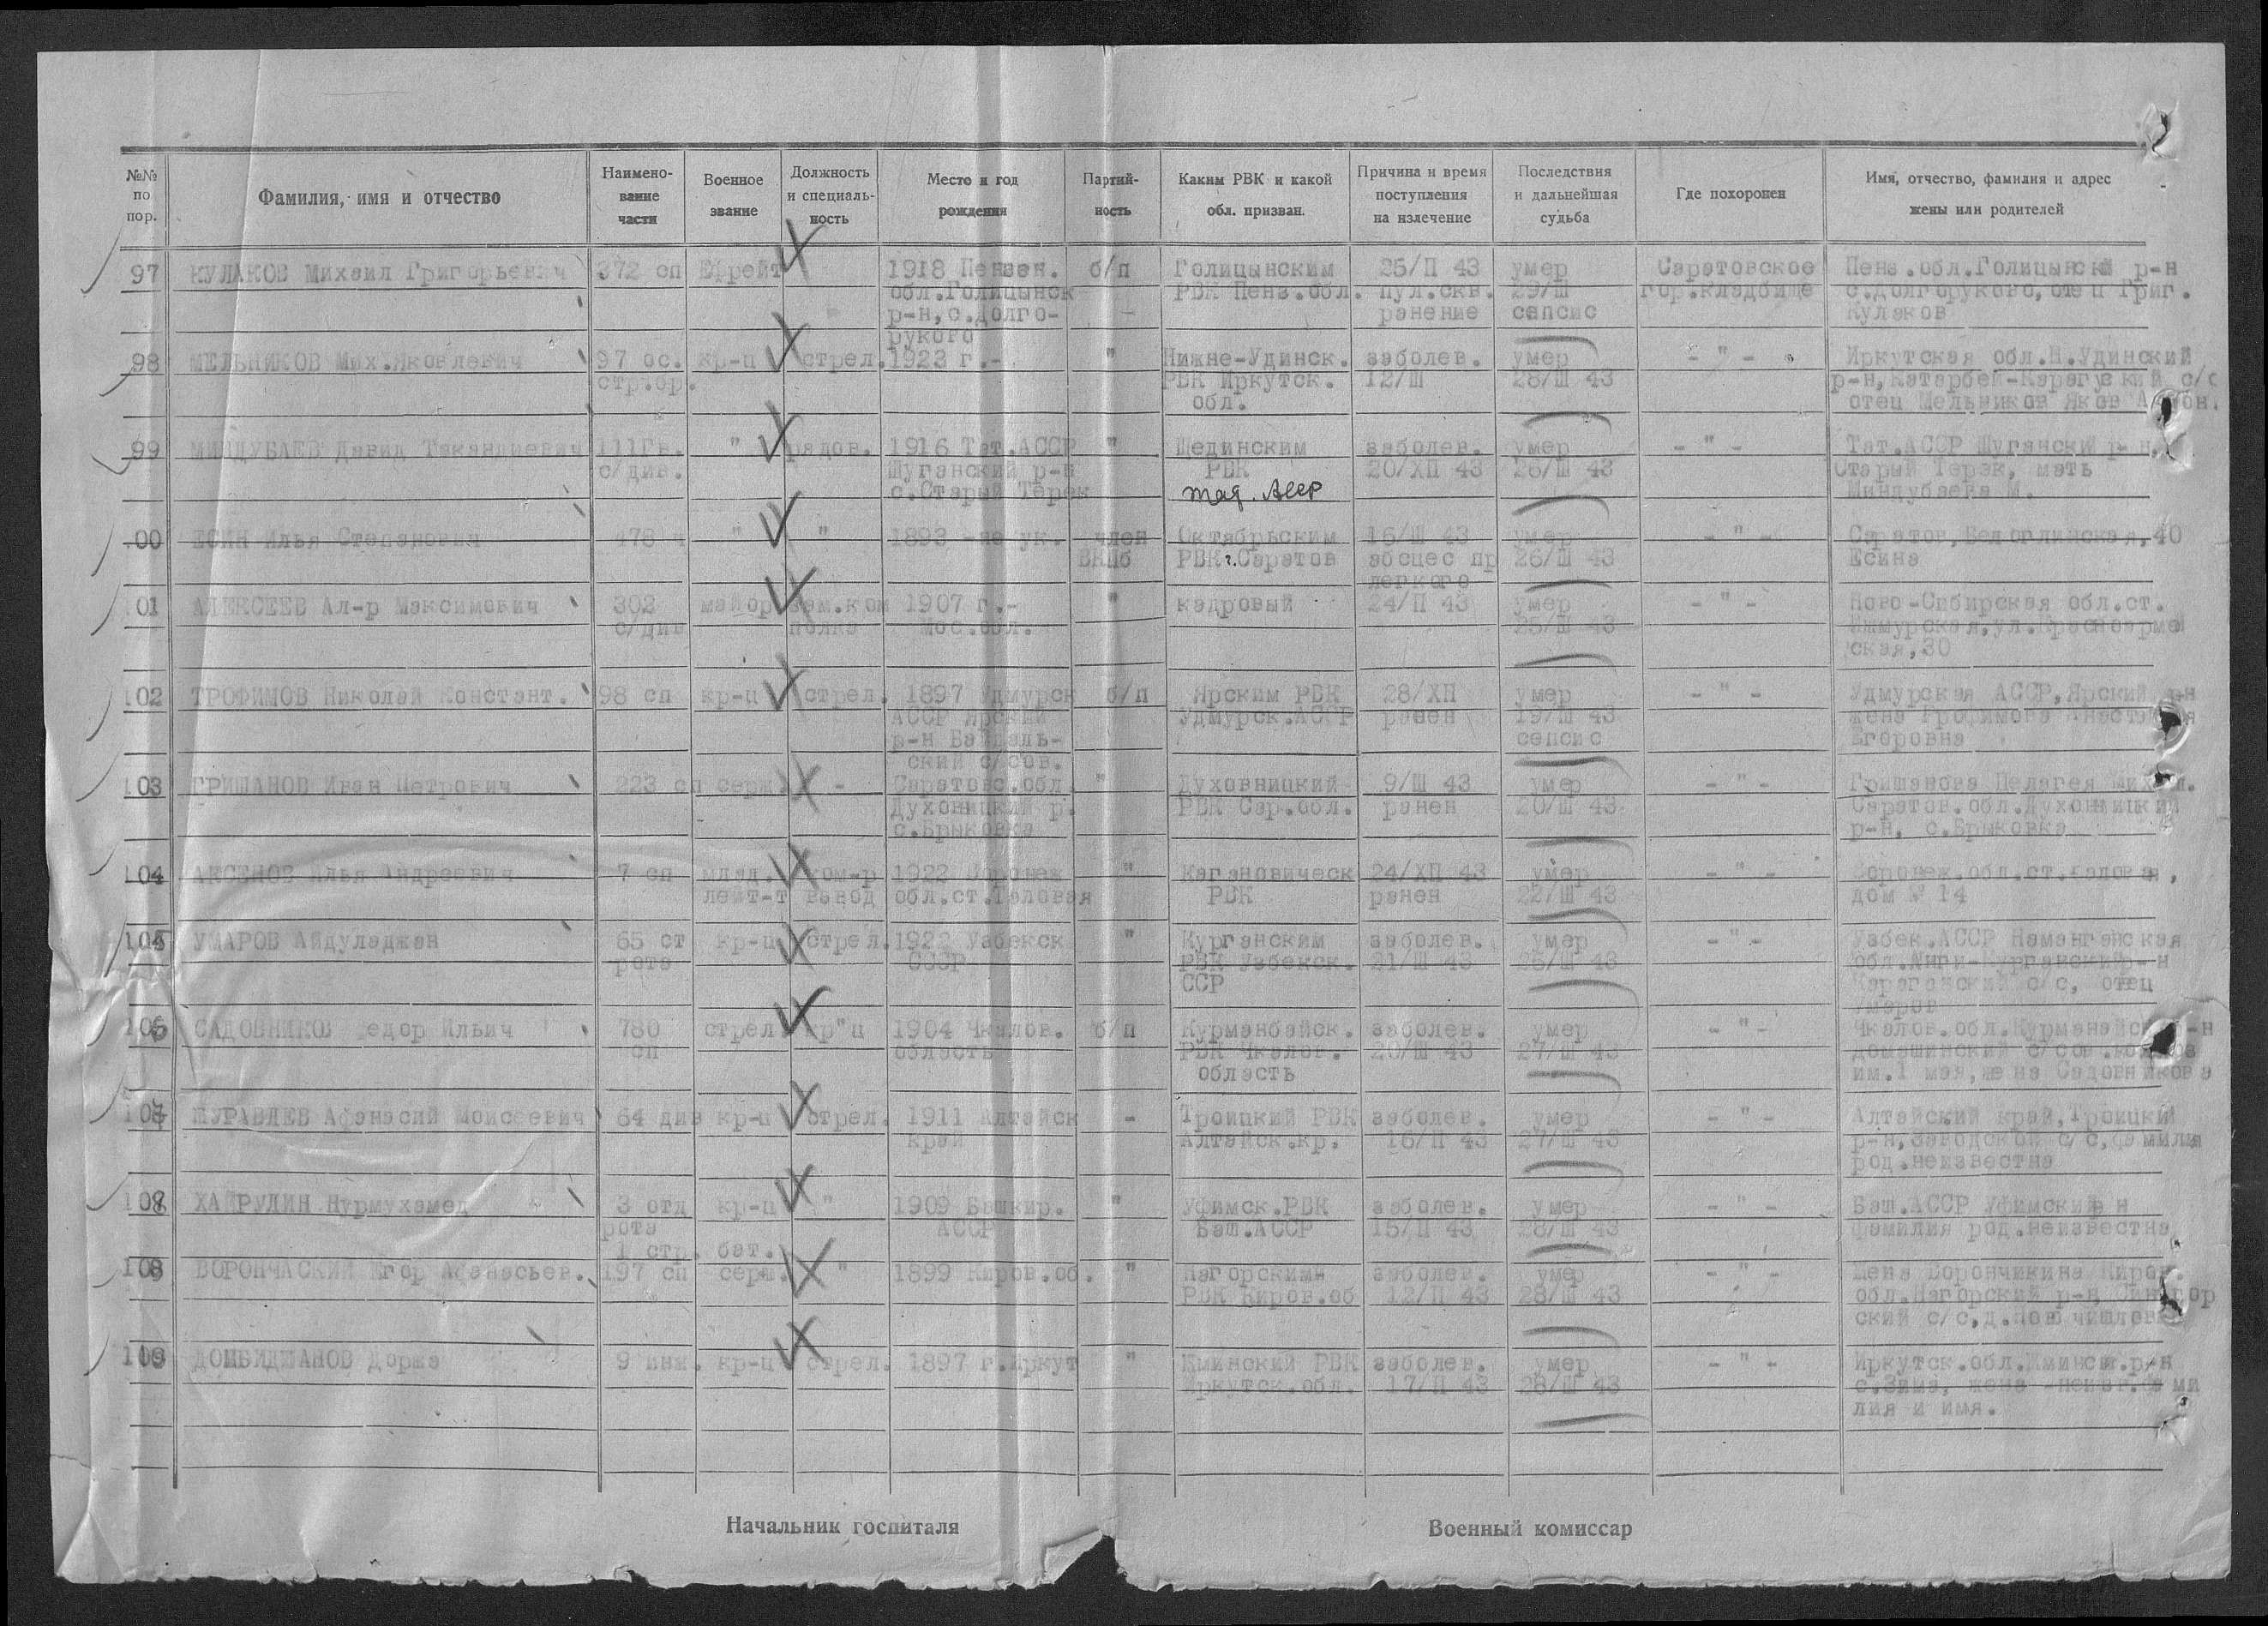 №№ по пор.
Фамилия, имя и отчество
Наимено-вание части
Военное звание
Должность и специаль-ность
Место и год рождения
Партий-ность
Каким РВК и какой обл. призван.
Причина и время поступления на излечение
Последствия и дальнейшая судьба
Где похоронен
Имя, отчество, фамилия и адрес жены или родителей
97 КУЛАКОВ Михаил Григорьевич 372 сп Ефрейт 1918 Пензен. б/п Голицынским 25/П 43 умер Саратовское Пенз.обл.Голицынский р-н
обл.Голицынск РВК Пенз.обл. пул.скв. 29/Ш гор.кладбище с.Долгоруково, отец Григ.
р-н,с.Долго- ранение сепсис Кулаков
рукого
98 МЕЛЬНИКОВ Мих.Яковлевич 97 ос. кр-ц стрел. 1923 г.- " Нижне-Удинск. заболев. умер - " - Иркутская обл.Н.Удинский
стр.ор. РВК Иркутск. 12/Ш 28/Ш 43 р-н, с/с
обл. отец Мельников Яков
99 МИНДУБАЕВ Давид 111Гв. " рядов. 1916 Тат.АССР " Шединским заболев. умер - " - Тат.АССР Шуганский р-н,
с/див. Шуганский р-н РВК 20/ХП 43 26/Ш 43 Старый Терек, мать
с.Старый Терек тат. АССР Миндубаева М.
00 ЕСИН Илья Степанович 478 " " 1893 -не ук. член Октябрьским 16/Ш 43 умер - " - Саратов,Белоглинская,40
ВКПб РВК г.Саратов абсцес пр 26/Ш 43 Есина
легкого
01 АЛЕКСЕЕВ Ал-р Максимович 302 майор зам.ком 1907 г.- " кадровый 24/П 43 умер - " - Ново-Сибирская обл.ст.
с/див полка Мос.обл. 25/Ш 43
ская,30
102 ТРОФИМОВ Николай Констант. 98 сп кр-ц стрел. 1897 Удмурск б/п Ярским РВК 28/ХП умер - " - Удмурская АССР,Ярский р-н
АССР Ярский Удмурск.АССР ранен 19/Ш 43 жена Трофимова
р-н сепсис Егоровна
ский с/сов.
103 ГРИШАНОВ Иван Петрович 223 сп серж. - Саратовс.обл. " Духовницкий 9/Ш 43 умер - " - Гришанова Пелагея
Духовницкий р. РВК Сар.обл. ранен 20/Ш 43 Саратов.обл.Духовницкий
с.Брыковка р-н, с.Брыковка
104 АКСЕНОВ Илья Андреевич 7 сп млад. ком-р 1922 Воронеж " Кагановическ 24/ХП 43 умер - " - Воронеж.обл.ст.Таловая,
лейт-т взвод обл.ст.Таловая РВК ранен 22/Ш 43 дом № 14
105 УМАРОВ Айдуладжан 65 ст кр-ц стрел. 1922 Узбекск " Курганским заболев. умер - " - Узбек.АССР Наманганская
рота СССР РВК Узбекск. 21/Ш 43 25/Ш 43 обл. р-н
ССР с/с, отец
Умаров
106 САДОВНИКОВ едор Ильич 780 стрел. кр"ц 1904 Чкалов. б/п Курманбайск. заболев. умер - " - Чкалов.обл.
сп область РВК Чкалов. 20/Ш 43 27/Ш 43 Домашинский с/сов.
область им.1 мая,жена Садовникова
107 ЖУРАВЛЕВ Афанасий Моисеевич 64 див кр-ц стрел. 1911 Алтайск - Троицкий РВК заболев. умер - " - Алтайский край,Троицкий
край Алтайск.кр. 16/П 43 27/Ш 43 р-н,Заводской с/с,фамилия
род.неизвестна
108 ХАЙРУДИН Нурмухамед 3 отд кр-ц " 1909 Башкир. " Уфимск.РВК заболев. умер - " - Баш.АССР Уфимский р н
рота АССР Баш.АССР 15/П 43 28/Ш 43 фамилия род.неизвестна
1 стр. бат.
109 ВОРОНЧАСКИН Егор Афанасьев. 197 сп серж. " 1899 Киров.об. " Нагорскими заболев. умер - " - Жена Ворончихина Киров.
РВК Киров.об 12/П 43 28/Ш 43 обл.Нагорский р-н
ский с/с,д.
110 ДОМБИДЖАНОВ Доржа 9 инж. кр-ц стрел. 1897 г.Иркут " Зиминский РВК заболев. умер - " - Иркутск.обл. р-н
Иркутск.обл. 17/П 43 28/Ш 43 с.Зима, жена -неизв.фами
лия и имя.
Начальник госпиталя
Военный комиссар